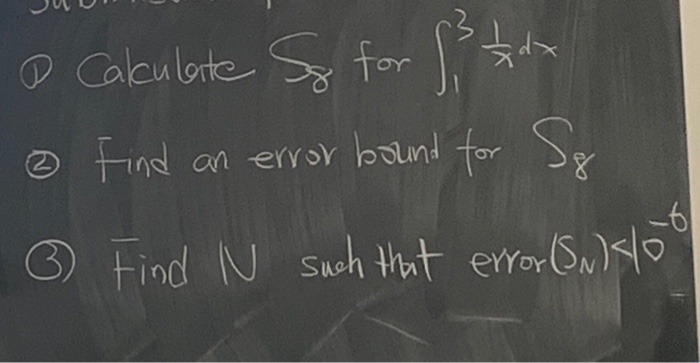 ① Calculate S₈ for ∫₁³ 1/x dx
② Find an error bound for S₈
③ Find N such that error(S_N)<10⁻⁶